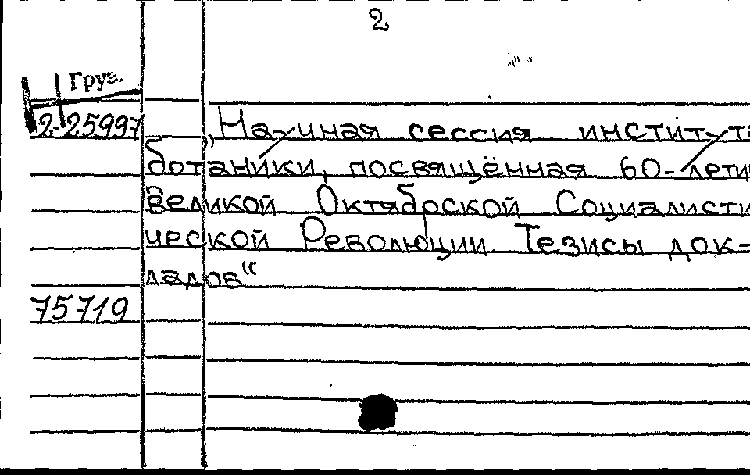 2
Груз.
2-25997
„Научная сессия институт
ботаники, посвящённая 60-лети
Великой Октябрской Социалисти
ческой Революции. Тезисы док-
ладов“
75719